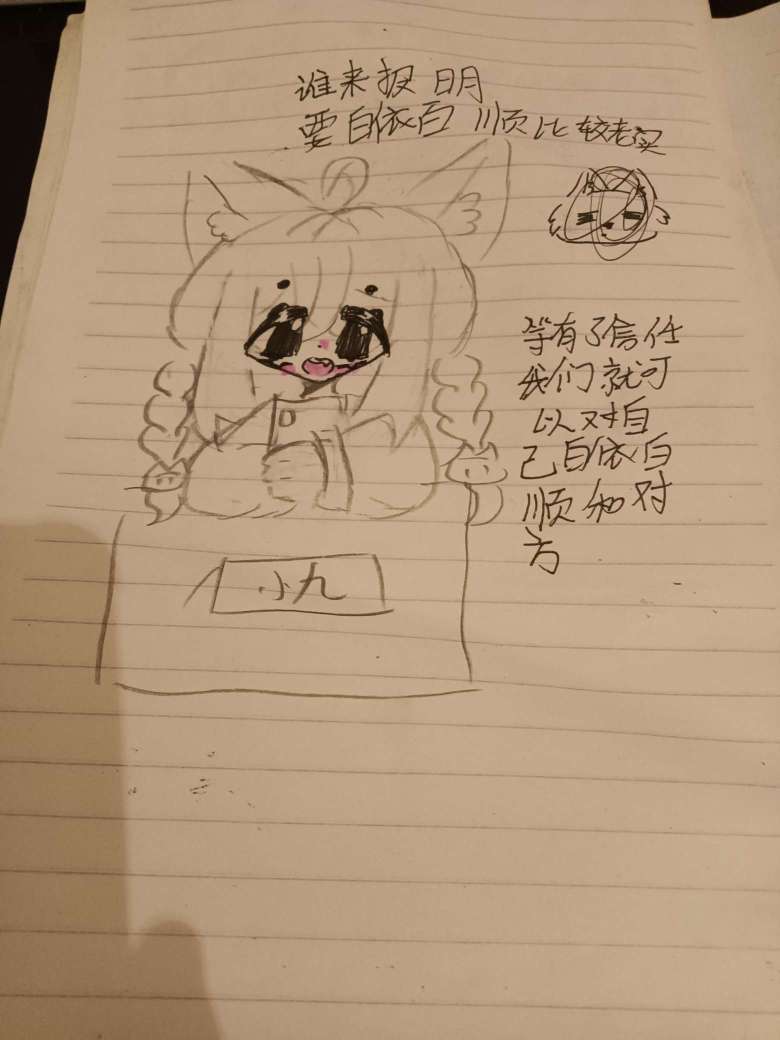 谁来报 明
要百依百 顺比较老实
等有了信任
我们就可
以对自
己百依百
顺和对
方
小九